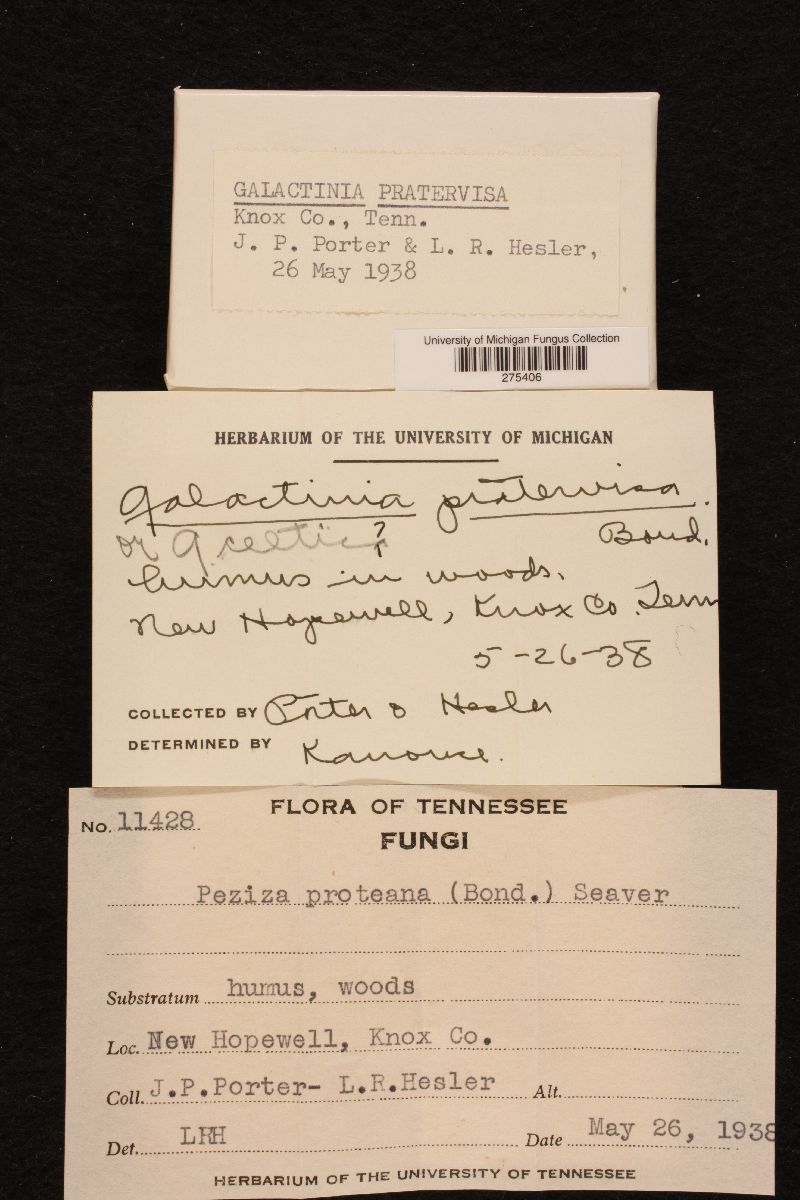 GALACTINIA PRATERVISA
Knox Co., Tenn.
J. P. Porter & L. R. Hesler,
26 May 1938
University of Michigan Fungus Collection
275406
HERBARIUM OF THE UNIVERSITY OF MICHIGAN
Galactinia pratervisa.
or G. celtica? Boud.
humus in woods.
New Hopewell, Knox Co. Tenn
5-26-38
COLLECTED BY Porter & Hesler
DETERMINED BY Kanouse.
FLORA OF TENNESSEE
No. 11428
FUNGI
Peziza proteana (Bond.) Seaver
Substratum humus, woods
Loc. New Hopewell, Knox Co.
Coll. J.P.Porter- L.R.Hesler Alt.
Det. LRH Date May 26, 1938
HERBARIUM OF THE UNIVERSITY OF TENNESSEE